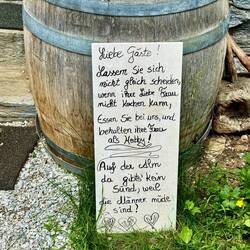 Liebe Gäste!
Lassen Sie sich
nicht gleich scheiden,
wenn ihre Liebe Frau
nicht kochen kann,
Essen Sie bei uns, und
behalten ihre Frau
als Hobby!
Auf der Alm
da gibts kein
Sünd, weil
die Männer müde
sind?